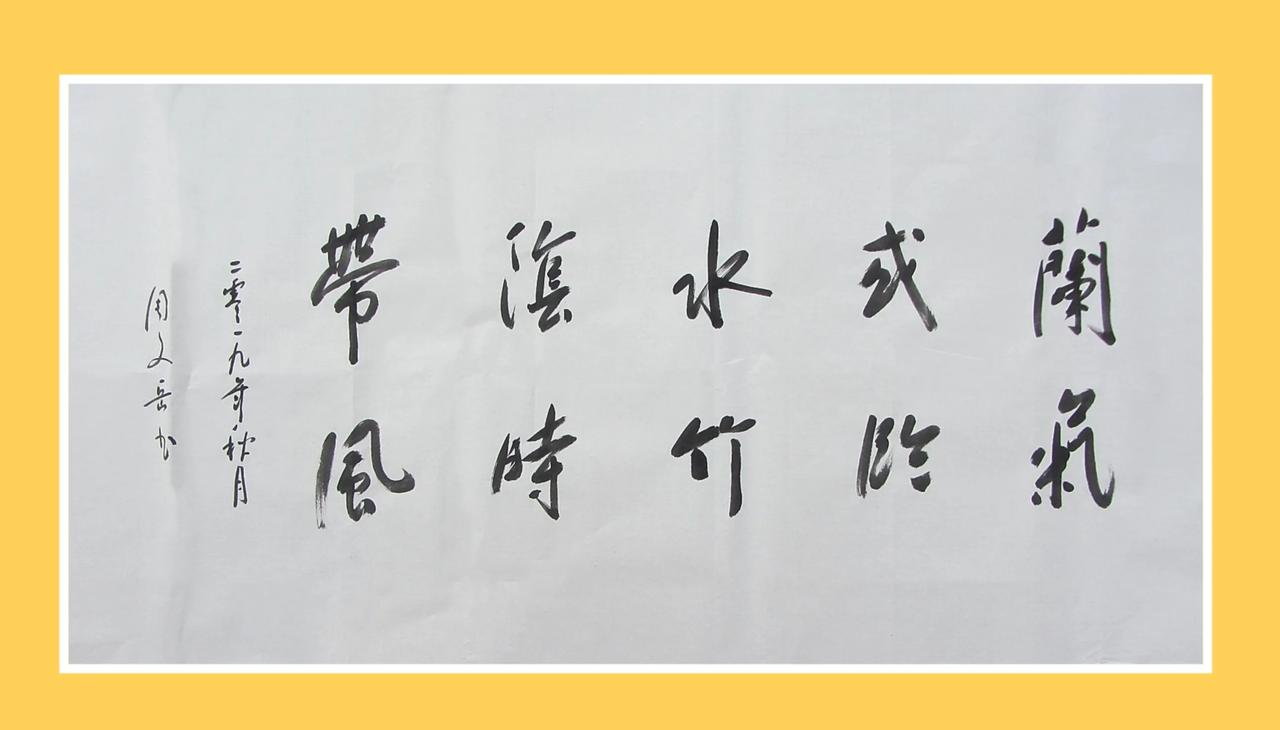 蘭氣
或臨
水竹
陰時
帶風
二零一九年秋月
周文岳书